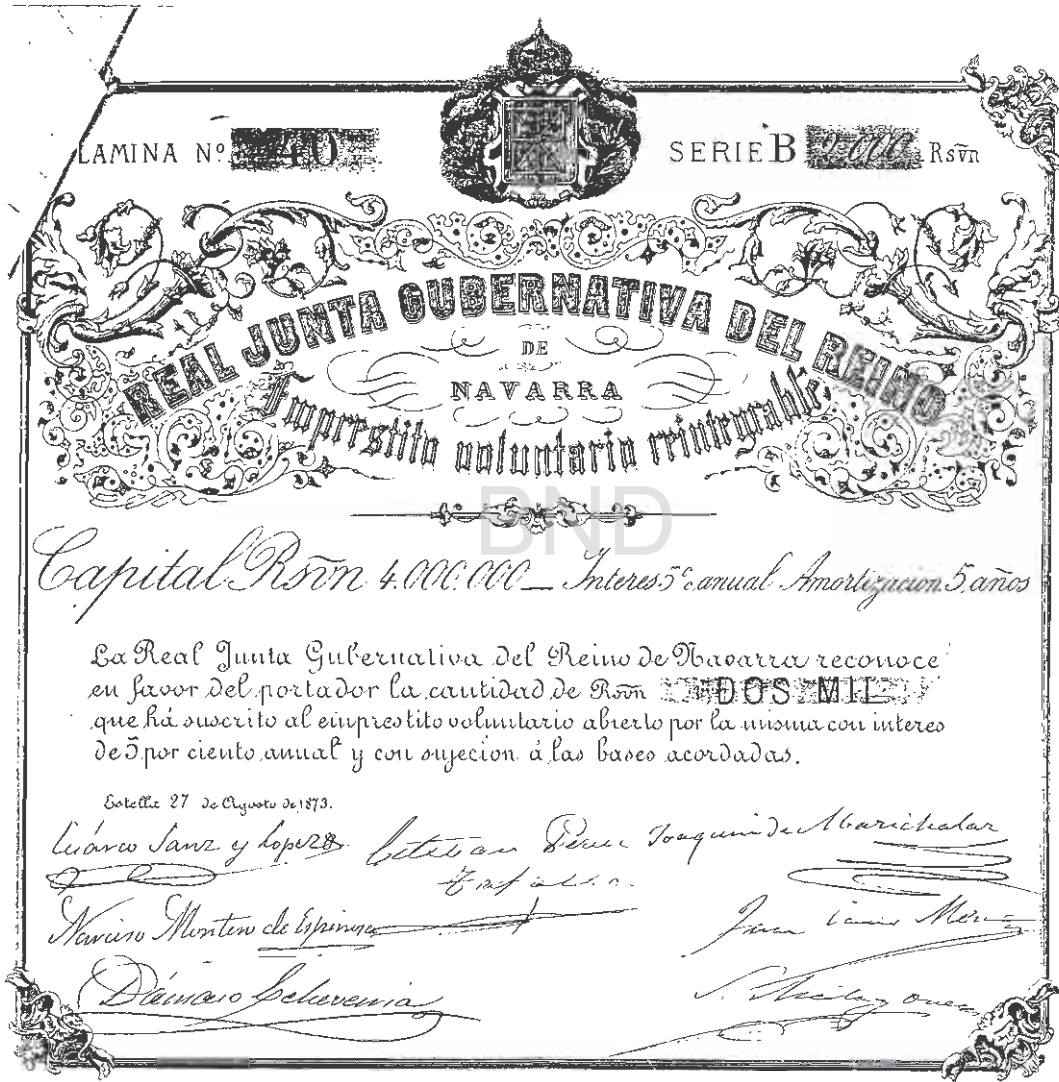 LAMINA Nº 40
SERIE B 2.000 Rsv̄n
REAL JUNTA GUBERNATIVA DEL REINO
DE
NAVARRA
Emprestito voluntario reintegrable
BND
Capital Rsv̄n 4.000.000 — Interes 5% anual Amortizacion 5 años
La Real Junta Gubernativa del Reino de Navarra reconoce
en favor del portador la cantidad de Rsv̄n DOS MIL
que há suscrito al emprestito voluntario abierto por la misma con interes
de 5 por ciento anual y con sujecion á las bases acordadas.
Estella 27 de Agosto de 1873.
Sanz y Lopez Esteban Perez Joaquin de Marichalar
Tafalla
Narciso Montero de Espinosa Juan
Dámaso Echeverria